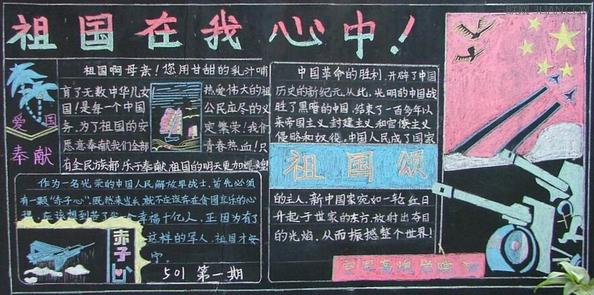 祖国在我心中！
祖国啊母亲！您用甘甜的乳汁哺
育了无数中华儿女
热爱伟大的祖
国！是每一个中国
公民应尽的义
务。为了祖国的安
定繁荣！我们
愿意奉献我们全部
青春热血！只
有全民族都乐于奉献,祖国的明天更加辉煌！
爱国
奉献
作为一名光荣的中国人民解放军战士，首先必须
有一颗“赤子心”
幸福十亿人，正因为有了
这样的军人，祖国才安
宁。
赤子心
501 第一期
中国革命的胜利，开辟了中国
历史的新纪元。从此，光明的中国战
胜了黑暗的中国，结束了一百多年以
来帝国主义、封建主义和官僚主义
侵略和奴役，中国人民成了国家
祖国颂
的主人。新中国宛如一轮红日
升起于世界的东方，放射出夺目
的光焰，从而振撼整个世界！